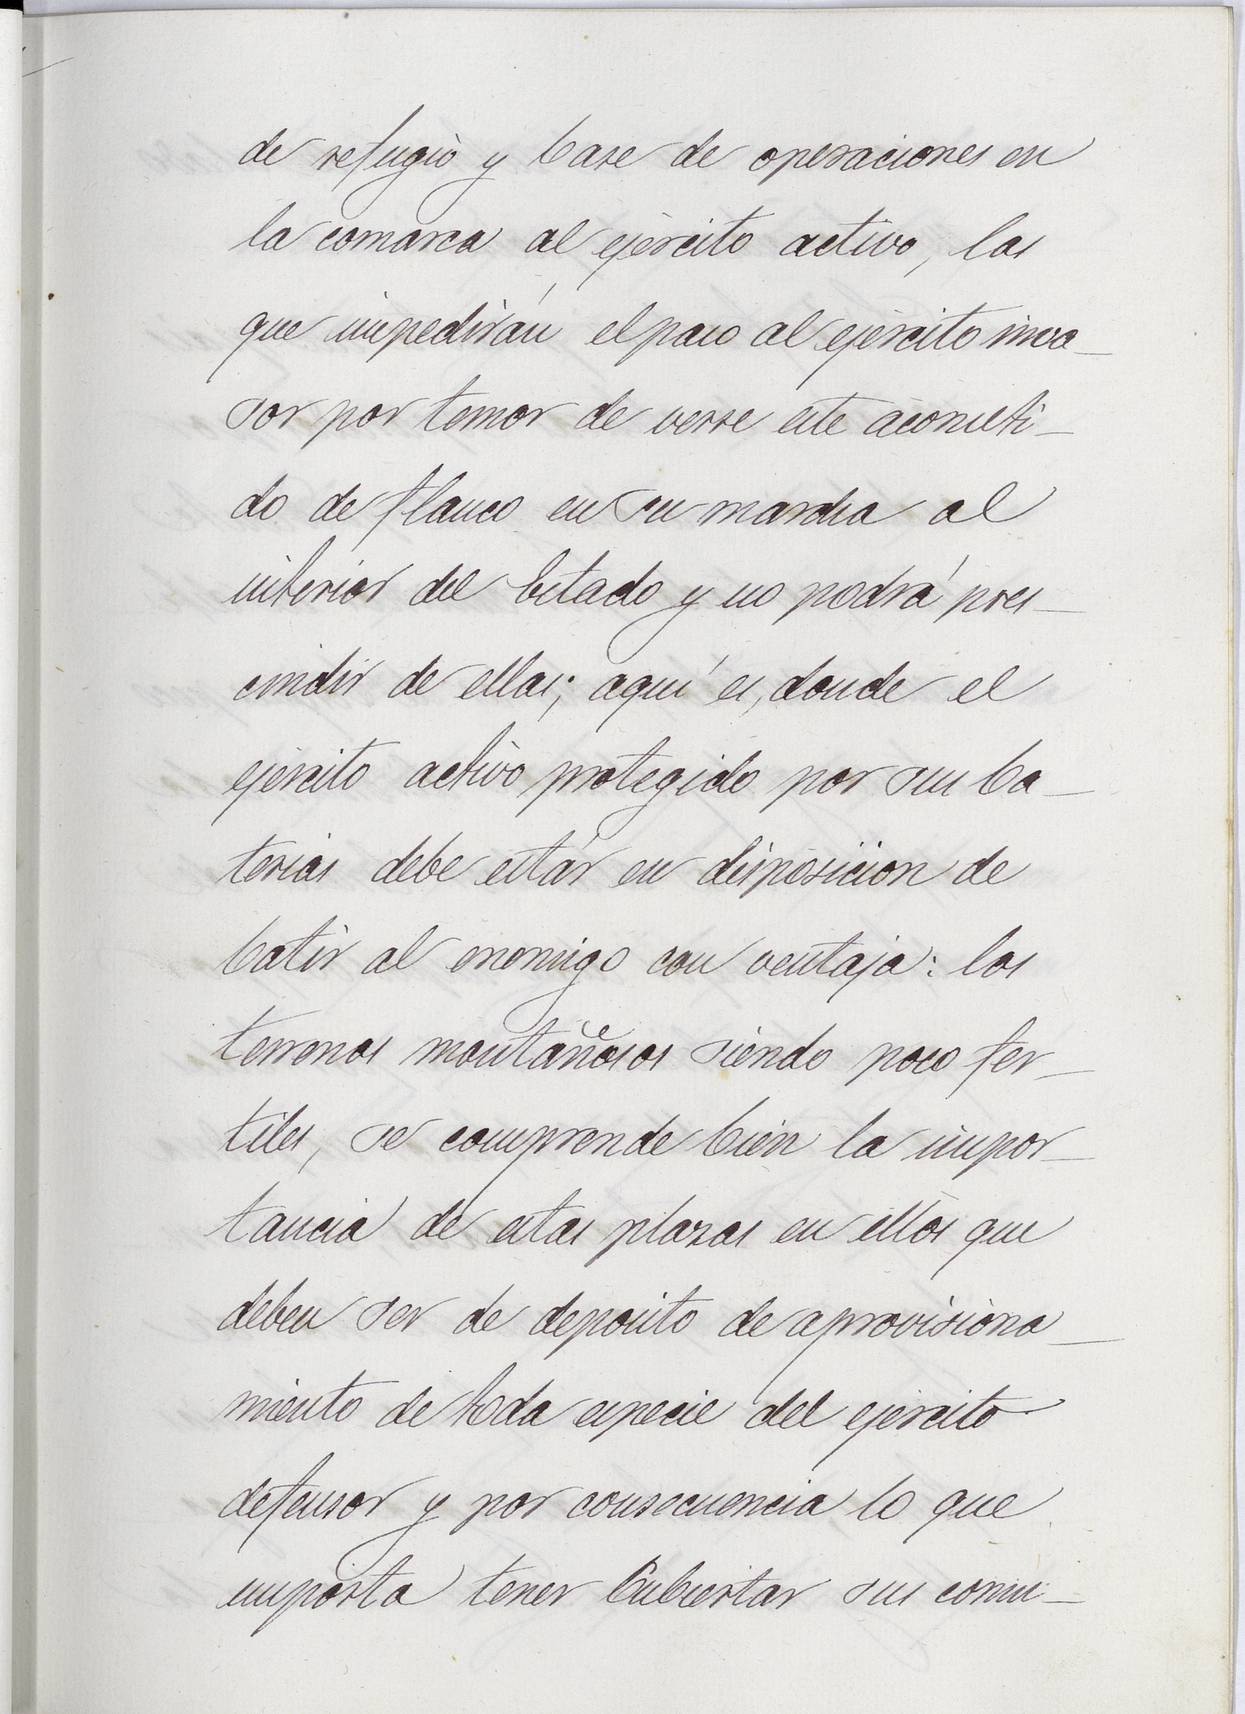 de refugio y base de operaciones en
la comarca al ejército activo, las
que impedirán el paso al ejército inva_
sor por temor de verse este acometi_
do de flanco en su marcha al
interior del Estado y no podrá pres_
cindir de ellas; aquí es, donde el
ejército activo protegido por sus ba_
terias debe estár en disposicion de
batir al enemigo con ventaja: los
terrenos montañosos siendo poco fer_
tiles, se comprende bien la impor_
tancia de estas plazas en ellos que
deben ser de deposito de aprovisiona_
miento de toda especie del ejército
defensor y por consecuencia lo que
importa tener cubiertas sus comu_